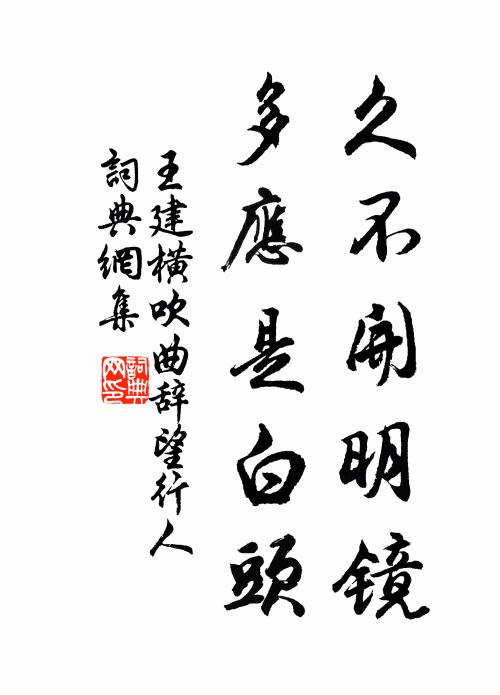 久不開明鏡
多應是白頭
王建横吹曲辞望行人
詞典網集
詞典網印